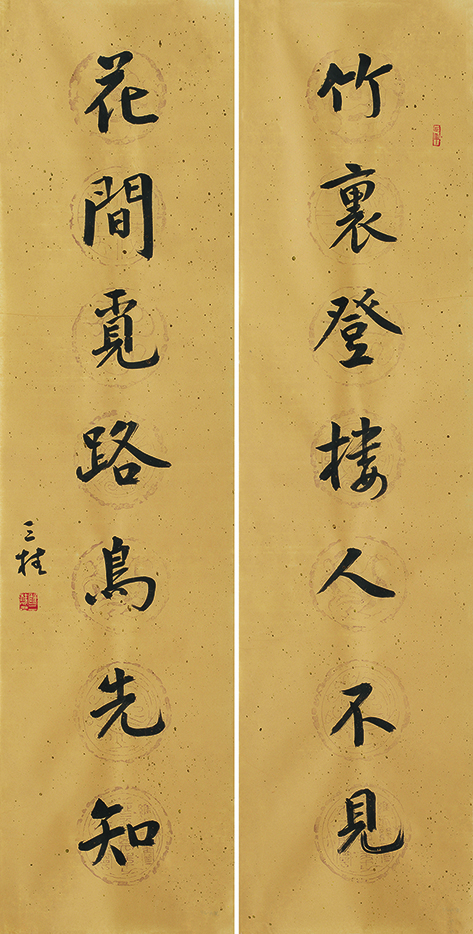 竹裏登樓人不見
花間覓路鳥先知
三桂